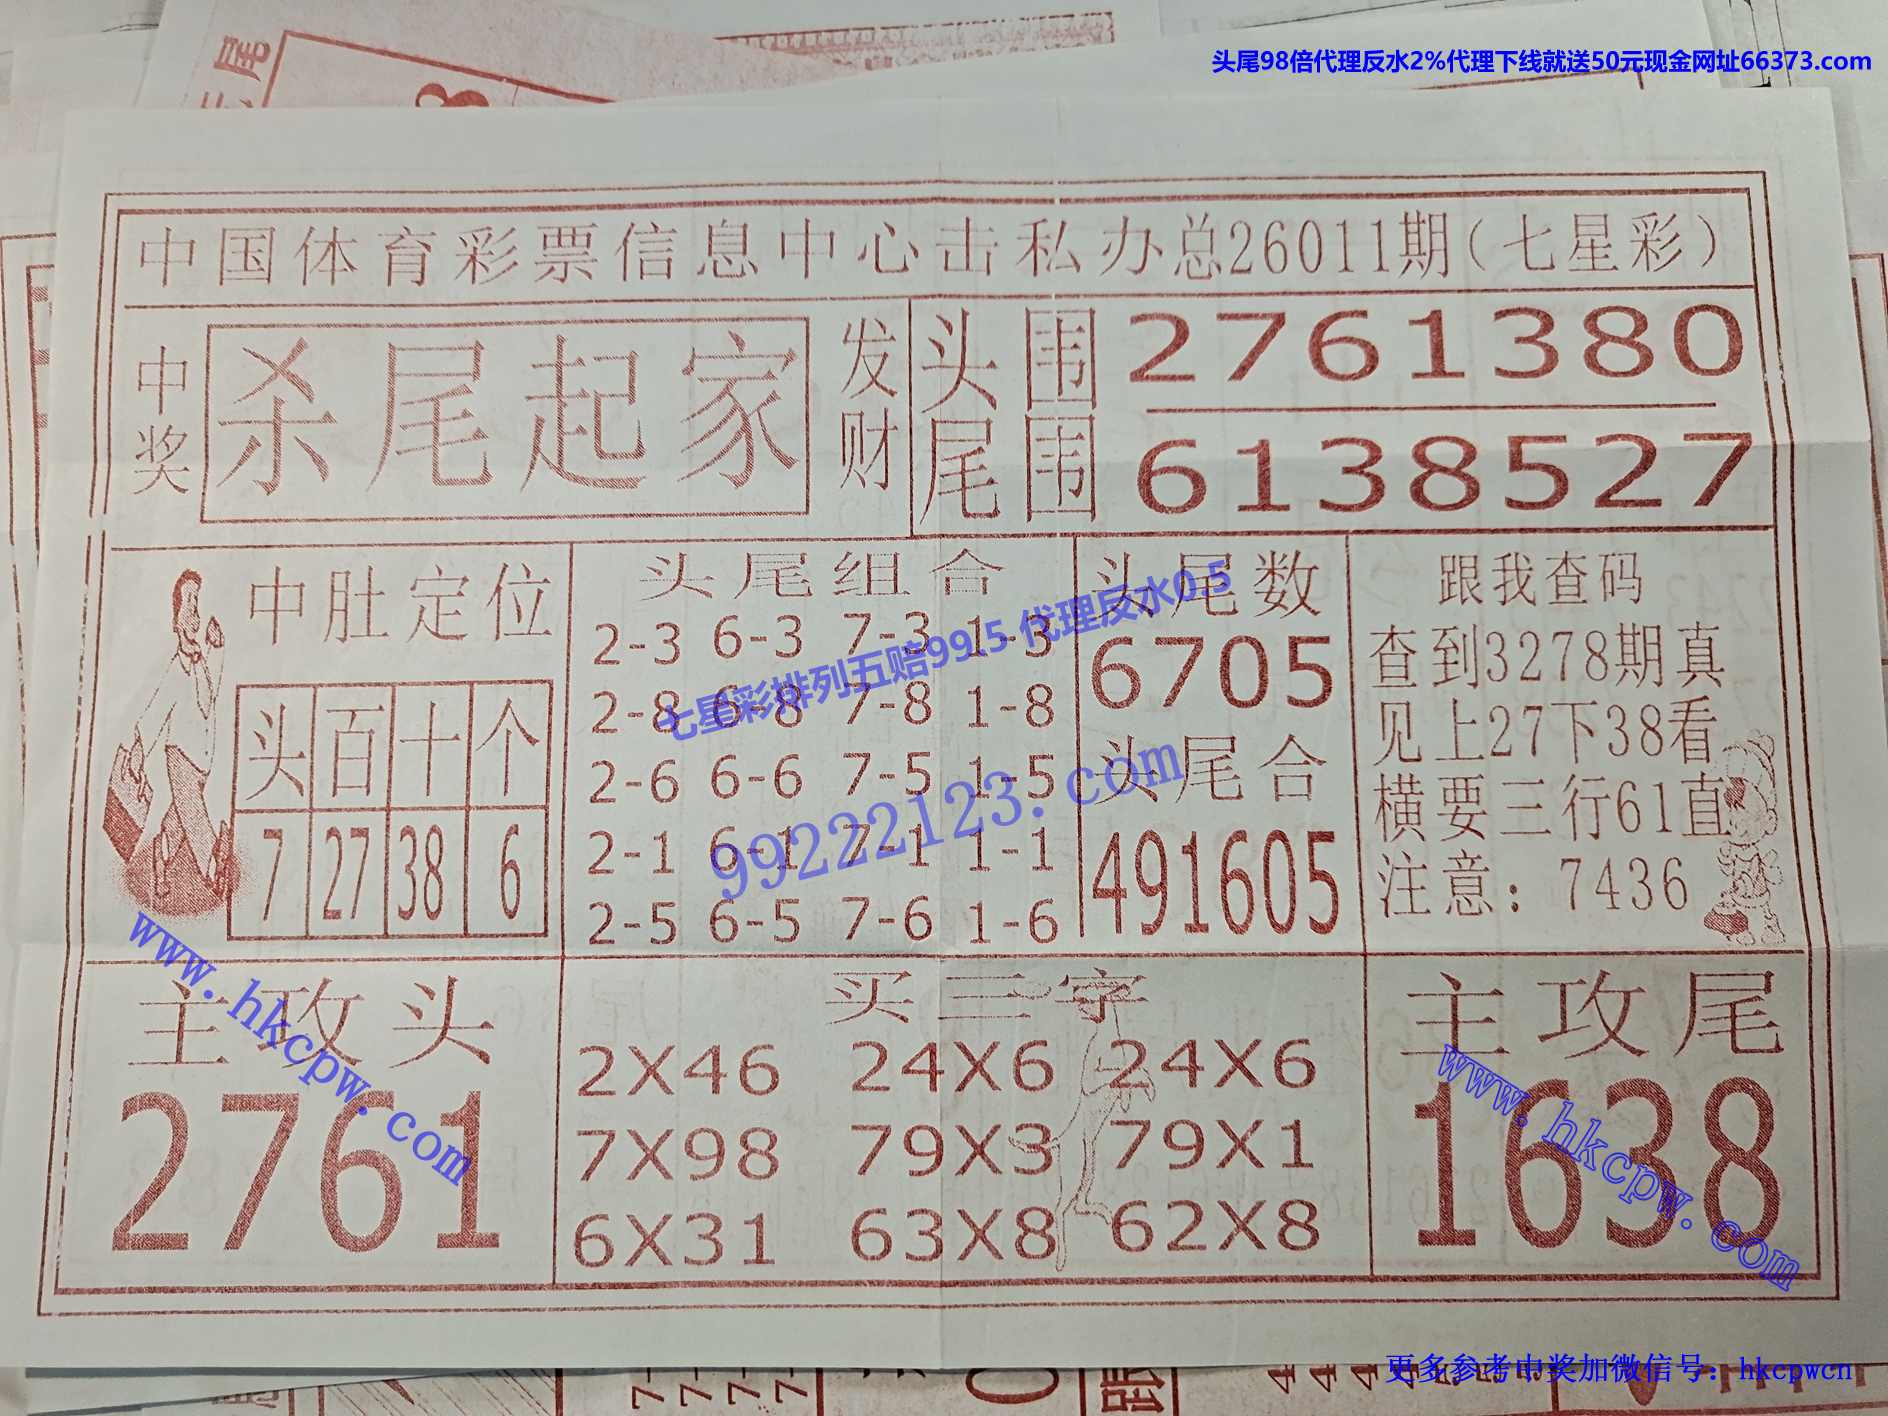 头尾98倍代理反水2%代理下线就送50元现金网址66373.com
中国体育彩票信息中心击私办总26011期(七星彩)
中奖
杀尾起家
发财
头围 2761380
尾围 6138527
中肚定位
头 百 十 个
7 27 38 6
头尾组合
2-3 6-3 7-3 1-3
2-8 6-8 7-8 1-8
2-6 6-6 7-5 1-5
2-1 6-1 7-1 1-1
2-5 6-5 7-6 1-6
头尾数
6705
头尾合
491605
跟我查码
查到3278期真
见上27下38看
横要三行61直
注意：7436
七星彩排列五赔99.5 代理反水0.5
99222123.com
主攻头
2761
买三字
2X46 24X6 24X6
7X98 79X3 79X1
6X31 63X8 62X8
主攻尾
1638
www.hkcpw.com
www.hkcpw.com
更多参考中奖加微信号：hkcpwcn